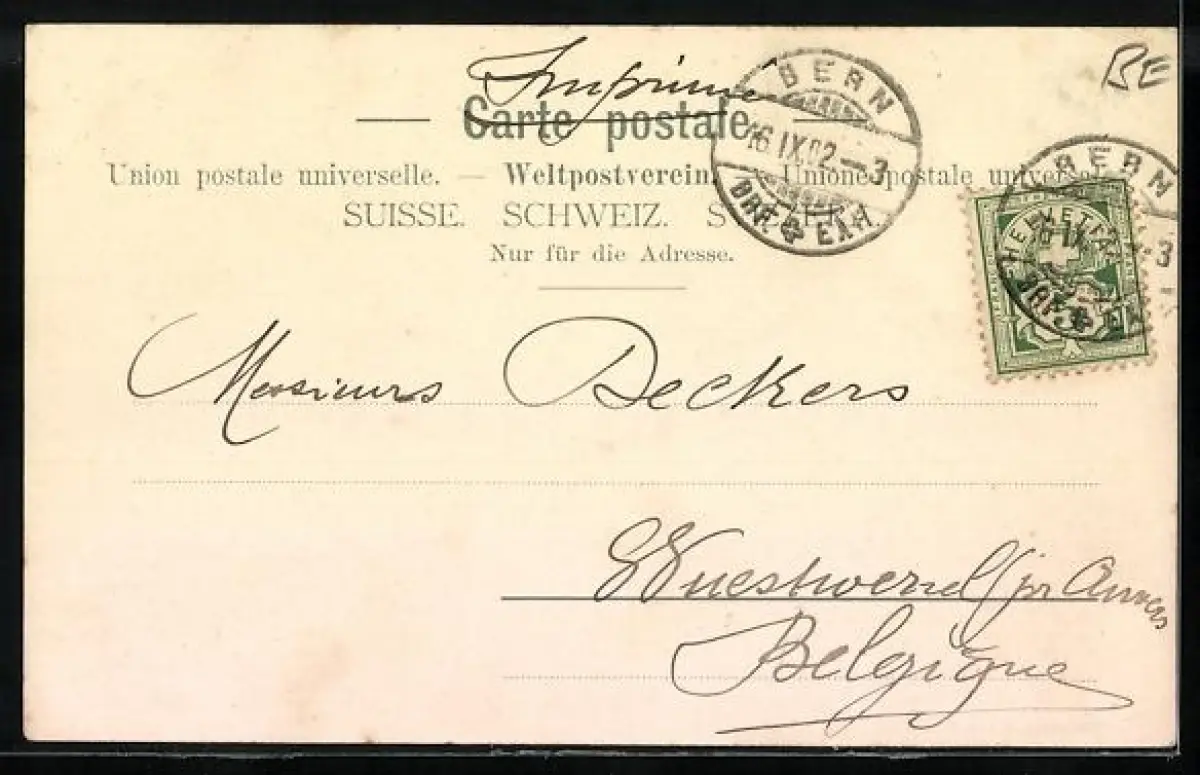 Imprimé
BE
Carte postale
BERN
16 IX 02 – 3
BRF. EXP.
Union postale universelle. — Weltpostverein. — Unione postale universale
SUISSE. SCHWEIZ. SVIZZERA.
Nur für die Adresse.
BERN
HELVETIA
Messieurs Deckers
Wuestwezel (pr Anvers
Belgique